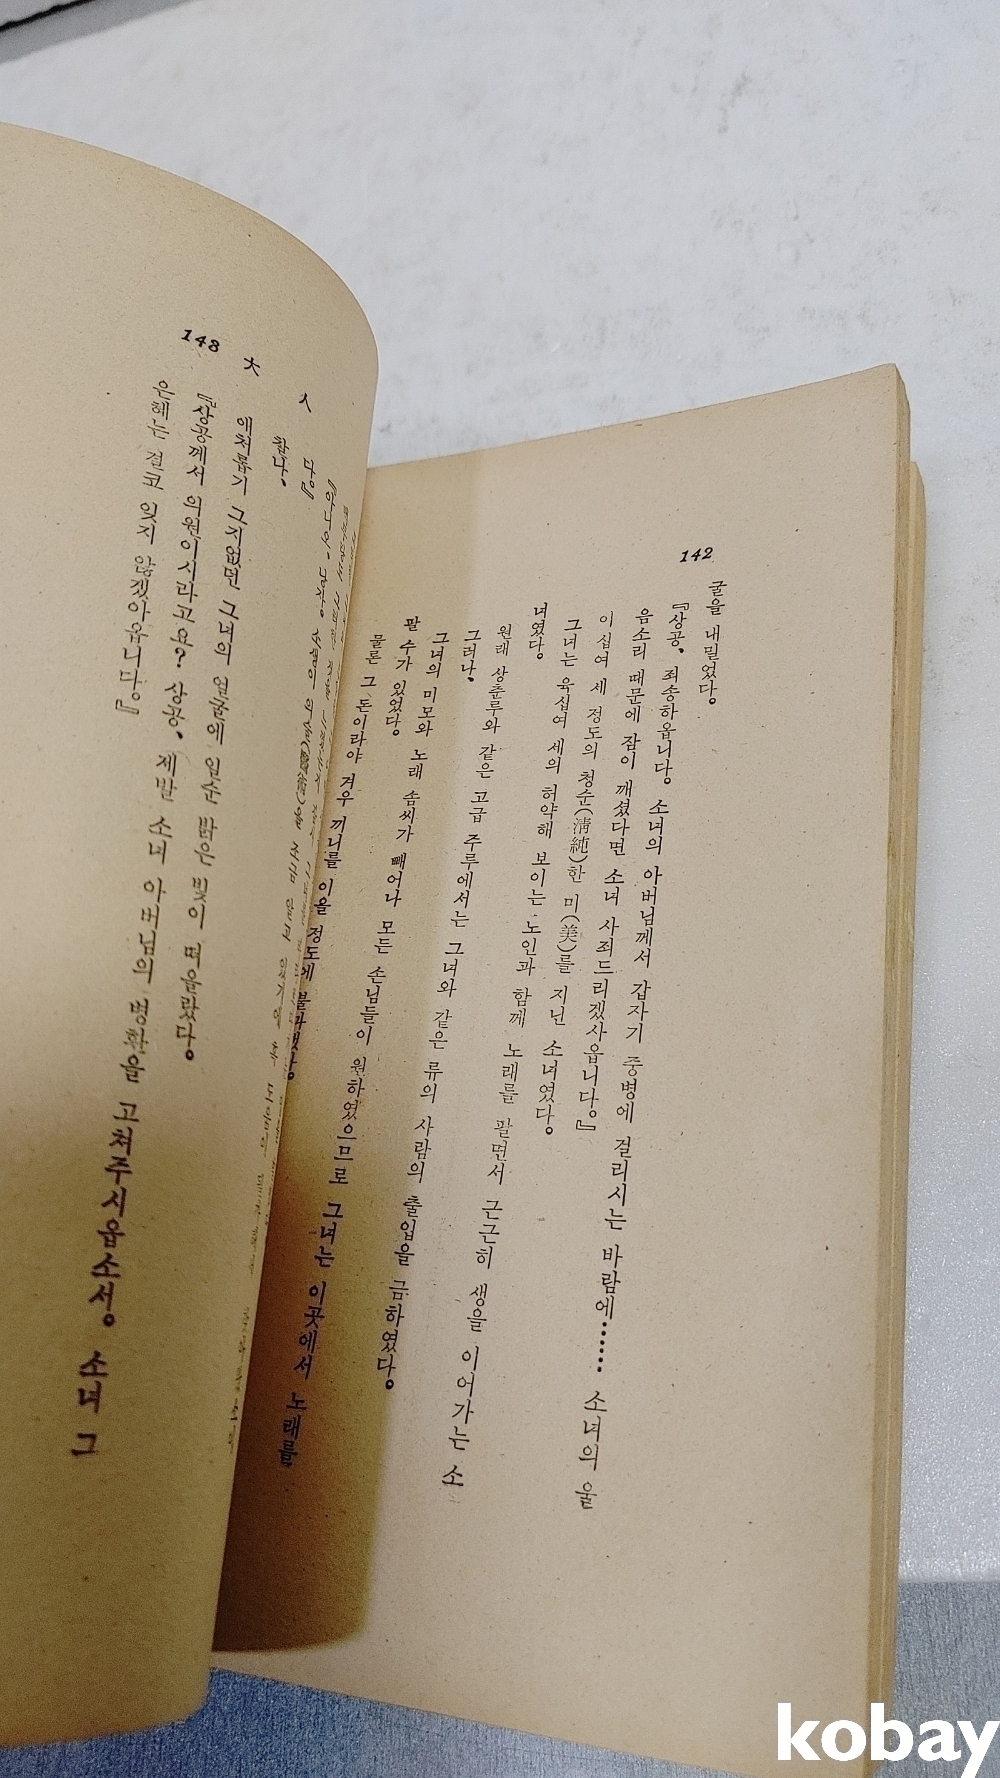 142
굴을 내밀었다.
『상공, 죄송하옵니다. 소녀의 아버님께서 갑자기 중병에 걸리시는 바람에…… 소녀의 울
음소리 때문에 잠이 깨셨다면 소녀 사죄드리겠사옵니다.』
이십여 세 정도의 청순(淸純)한 미(美)를 지닌 소녀였다.
그녀는 육십여 세의 허약해 보이는 노인과 함께 노래를 팔면서 근근히 생을 이어가는 소
녀였다.
원래 상춘루와 같은 고급 주루에서는 그녀와 같은 류의 사람의 출입을 금하였다.
그러나,
그녀의 미모와 노래 솜씨가 빼어나 모든 손님들이 원하였으므로 그녀는 이곳에서 노래를
팔 수가 있었다.
물론 그 돈이라야 겨우 끼니를 이을 정도에 불과했다.
143 大 人
『아니오, 낭자. 소생이 의술(醫術)을 조금 알고 있기에 혹
다.』
찰나,
애처롭기 그지없던 그녀의 얼굴에 일순 밝은 빛이 떠올랐다.
『상공께서 의원이시라고요? 상공, 제발 소녀 아버님의 병환을 고쳐주시옵소서. 소녀 그
은혜는 결코 잊지 않겠아옵니다.』
kobay